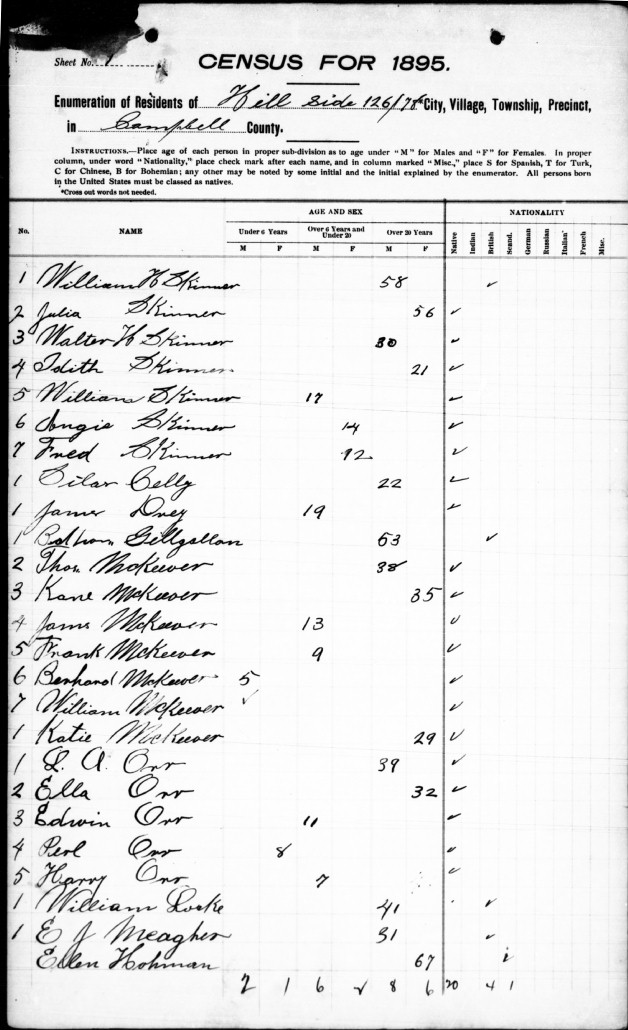 Sheet No. 1
CENSUS FOR 1895.
Enumeration of Residents of Hill Side 126/78 City, Village, Township, Precinct,
in Campbell County.
INSTRUCTIONS.—Place age of each person in proper sub-division as to age under "M" for Males and "F" for Females. In proper
column, under word "Nationality," place check mark after each name, and in column marked "Misc.," place S for Spanish, T for Turk,
C for Chinese, B for Bohemian; any other may be noted by some initial and the initial explained by the enumerator. All persons born
in the United States must be classed as natives.
*Cross out words not needed.
AGE AND SEX NATIONALITY
No. NAME Under 6 Years Over 6 Years and Under 20 Over 20 Years Native Indian British Scand. German Russian Italian French Misc.
M F M F M F
1 William H Skinner 58 ✓
2 Julia Skinner 56 ✓
3 Walter H Skinner 30 ✓
4 Idith Skinner 21 ✓
5 William Skinner 17 ✓
6 Angie Skinner 14 ✓
7 Fred Skinner 12 ✓
1 Celly 22 ✓
1 James 19 ✓
1 Gillgallon 53 ✓
2 Thos. McKeever 38 ✓
3 Kane McKeever 35 ✓
4 James McKeever 13 ✓
5 Frank McKeever 9 ✓
6 Benhard McKeever 5 ✓
7 William McKeever ✓ ✓
1 Katie McKeever 29 ✓
1 L. A. Orr 39 ✓
2 Ella Orr 32 ✓
3 Edwin Orr 11 ✓
4 Perl Orr 8 ✓
5 Harry Orr 7 ✓
1 William Locke 41 ✓
1 E J Meagher 31 ✓
Ellen Hohman 67 ✓
2 1 6 2 8 6 20 4 1